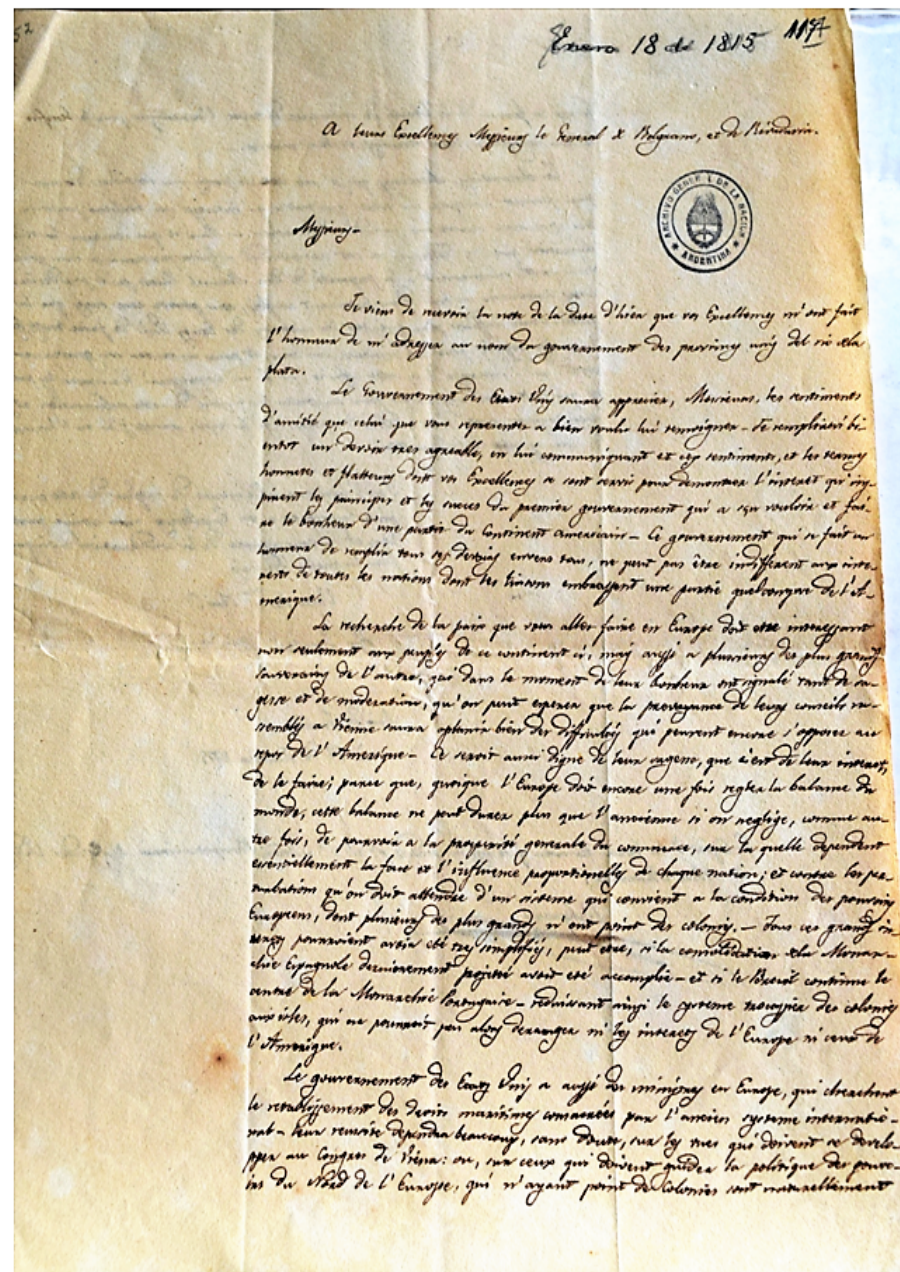 52
Enero 18 de 1815
A leurs Excellences Messieurs le General de Belgrano, et de Rivadavia.
ARCHIVO GENERAL DE LA NACION
ARGENTINA
Messieurs-
Je viens de recevoir la note de la date d'hier que vos Excellences m'ont fait
l'honneur de m'adresser au nom du gouvernement des provinces unis del rio de la
plata.
Le Gouvernement des Etats Unis saura apprecier, Messieurs, les sentiments
d'amitié que celui que vous representez a bien voulu lui temoigner - Je remplirai bi-
entot un devoir tres agreable, en lui communiquant et ces sentiments, et les termes
honnetes et flatteurs dont vos Excellences se sont servis pour demontrer l'interet qu'ins-
pirent les principes et les succes du premier gouvernement qui a su vouloir et fai-
re le bonheur d'une partie du Continent americain - Ce gouvernement qui se fait un
honneur de remplir tous ses devoirs envers tous, ne peut pas être indifferent aux inte-
rets de toutes les nations dont les liaisons embrassent une partie quelconque de l'A-
merique.
La recherche de la paix que vous allez faire en Europe doit etre interessant
non seulement aux peuples de ce continent ci, mais aussi a plusieurs des plus grands
souverains de l'autre, qui dans le moment de leur bonheur ont signalé tant de sa-
gesse et de moderation, qu'on peut esperer que la prevoyance de leurs conseils ra-
semblés a Vienne saura aplanir bien des difficultés qui peuvent encore s'opposer au
repos de l'Amerique - Ce seroit aussi digne de leur sagesse, que c'est de leur interets
de le faire; parce que, quoique l'Europe doit encore une fois regler la balance du
monde, cette balance ne peut durer plus que l'ancienne si on neglige, comme au-
tre fois, de pourvoir a la prosperité generale du commerce, sur la quelle dependent
essentiellement la force et l'influence proportionelles de chaque nation; et contre les per-
turbations qu'on doit attendre d'un sisteme qui convient a la condition des pouvoirs
Europeens, dont plusieurs des plus grands n'ont point des colonies. - Tous ces grands in-
terets pourroient avoir eté tres simplifiés, peut etre, si la consolidation de la Monar-
chie Espagnole dernierement projeté avoit eté accomplie - et si le Bresil continue le
centre de la Monarchie Portugaise - reduisant ainsi le systeme des colonies
aux isles, qui ne pourroit pas alors deranger ni les interets de l'Europe ni ceux de
l'Amerique.
Le gouvernement des Etats Unis a aussi des ministres en Europe, qui cherchent
le retablissement des droits maritimes consacrées par l'ancien systeme internatio-
nal - leur reussite dependra beaucoup, sans doute, sur les vues qui doivent se develo-
pper au Congres de Viena: ou, sur ceux qui doivent guider la politique des pouvo-
irs du Nord de l'Europe, qui n'ayant point de Colonies sont naturellement